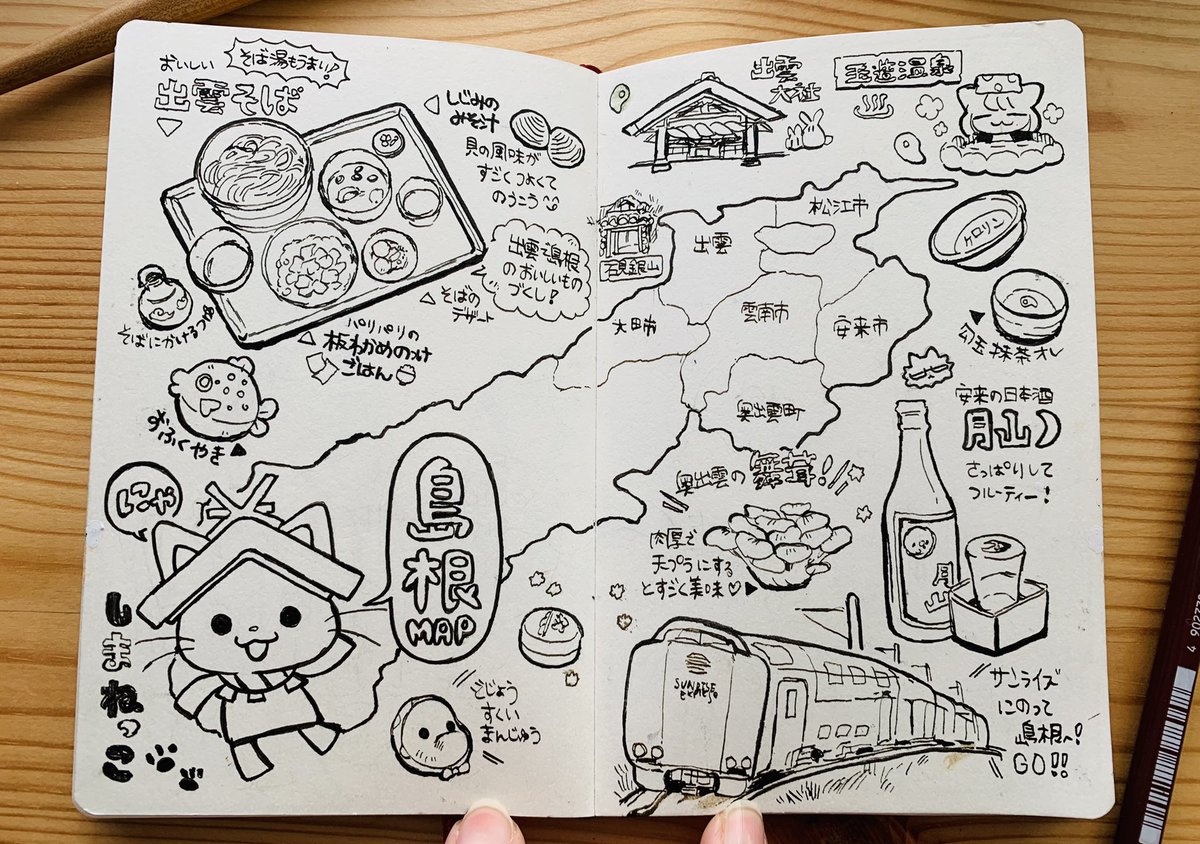 おいしい
そば湯もうまい!
出雲そば
しじみの
みそ汁
貝の風味が
すごくつよくて
のうこう
出雲・島根
のおいしいもの
づくし!
そばの
デザート
そばにかけるつゆ
パリパリの
板わかめのっけ
ごはん
おふくやき
にゃ
しまねっこ
島根
MAP
どじょう
すくい
まんじゅう
出雲
大社
玉造温泉
松江市
出雲
石見銀山
大田市
雲南市
安来市
奥出雲町
ケロリン
勾玉抹茶オレ
安来の日本酒
月山
さっぱりして
フルーティー!
月山
奥出雲の舞茸!
肉厚で
天プラにする
とすごく美味♡
SUNRISE
EXPRESS
サンライズ
にのって
島根へ!
GO!!